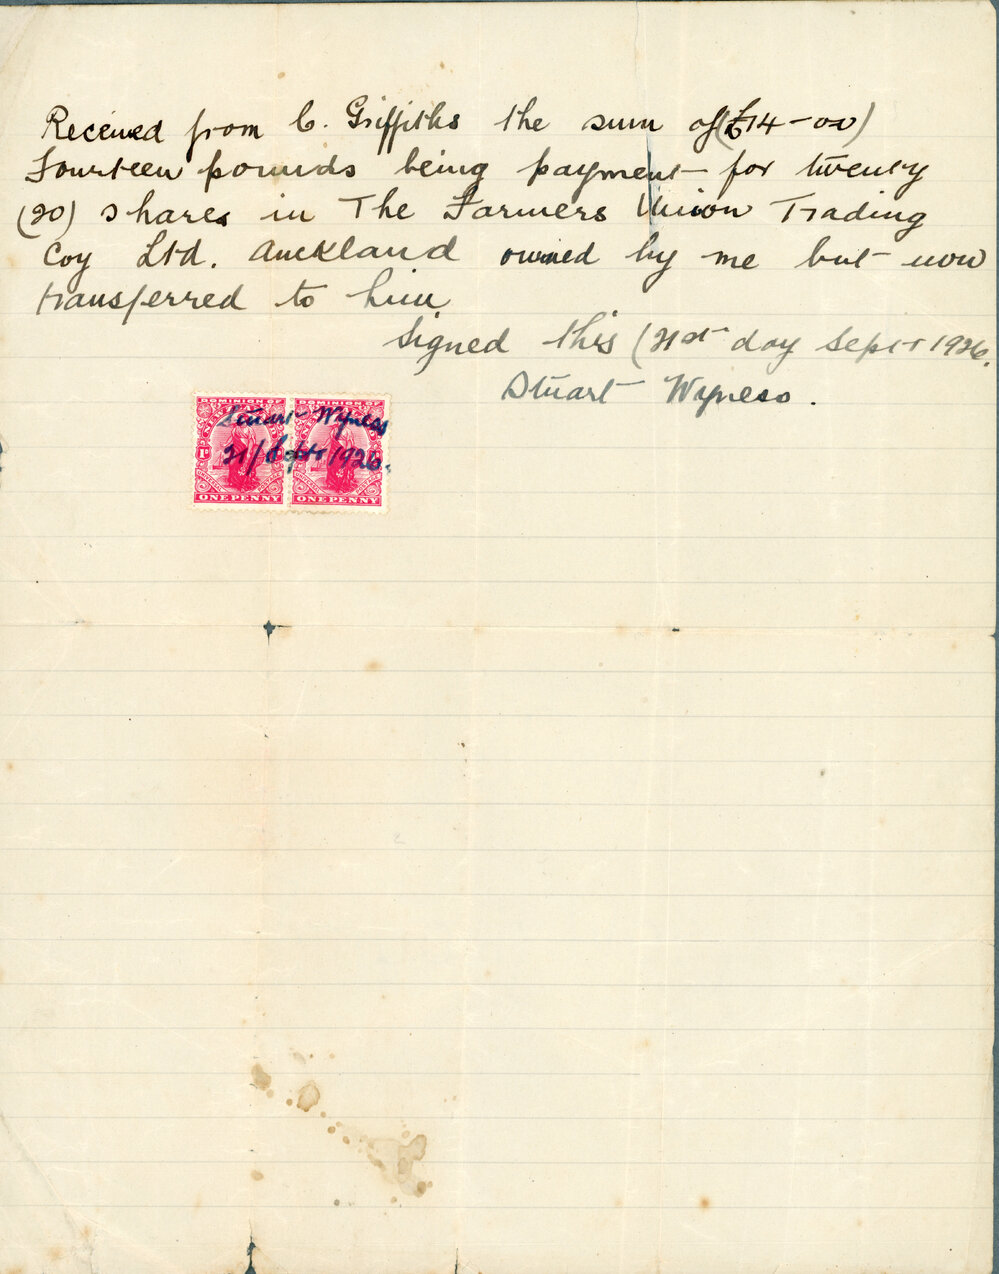 Received from C. Griffiths the sum of (£14-00)
Fourteen pounds being payment for twenty
(20) shares in The Farmers Union Trading
Coy Ltd. Auckland owned by me but now
transferred to him
Signed this (21st day Sept 1926.
Stuart Wyness.
DOMINION OF DOMINION OF
Stuart Wyness
21/Sept 1926.
1D
ONE PENNY ONE PENNY